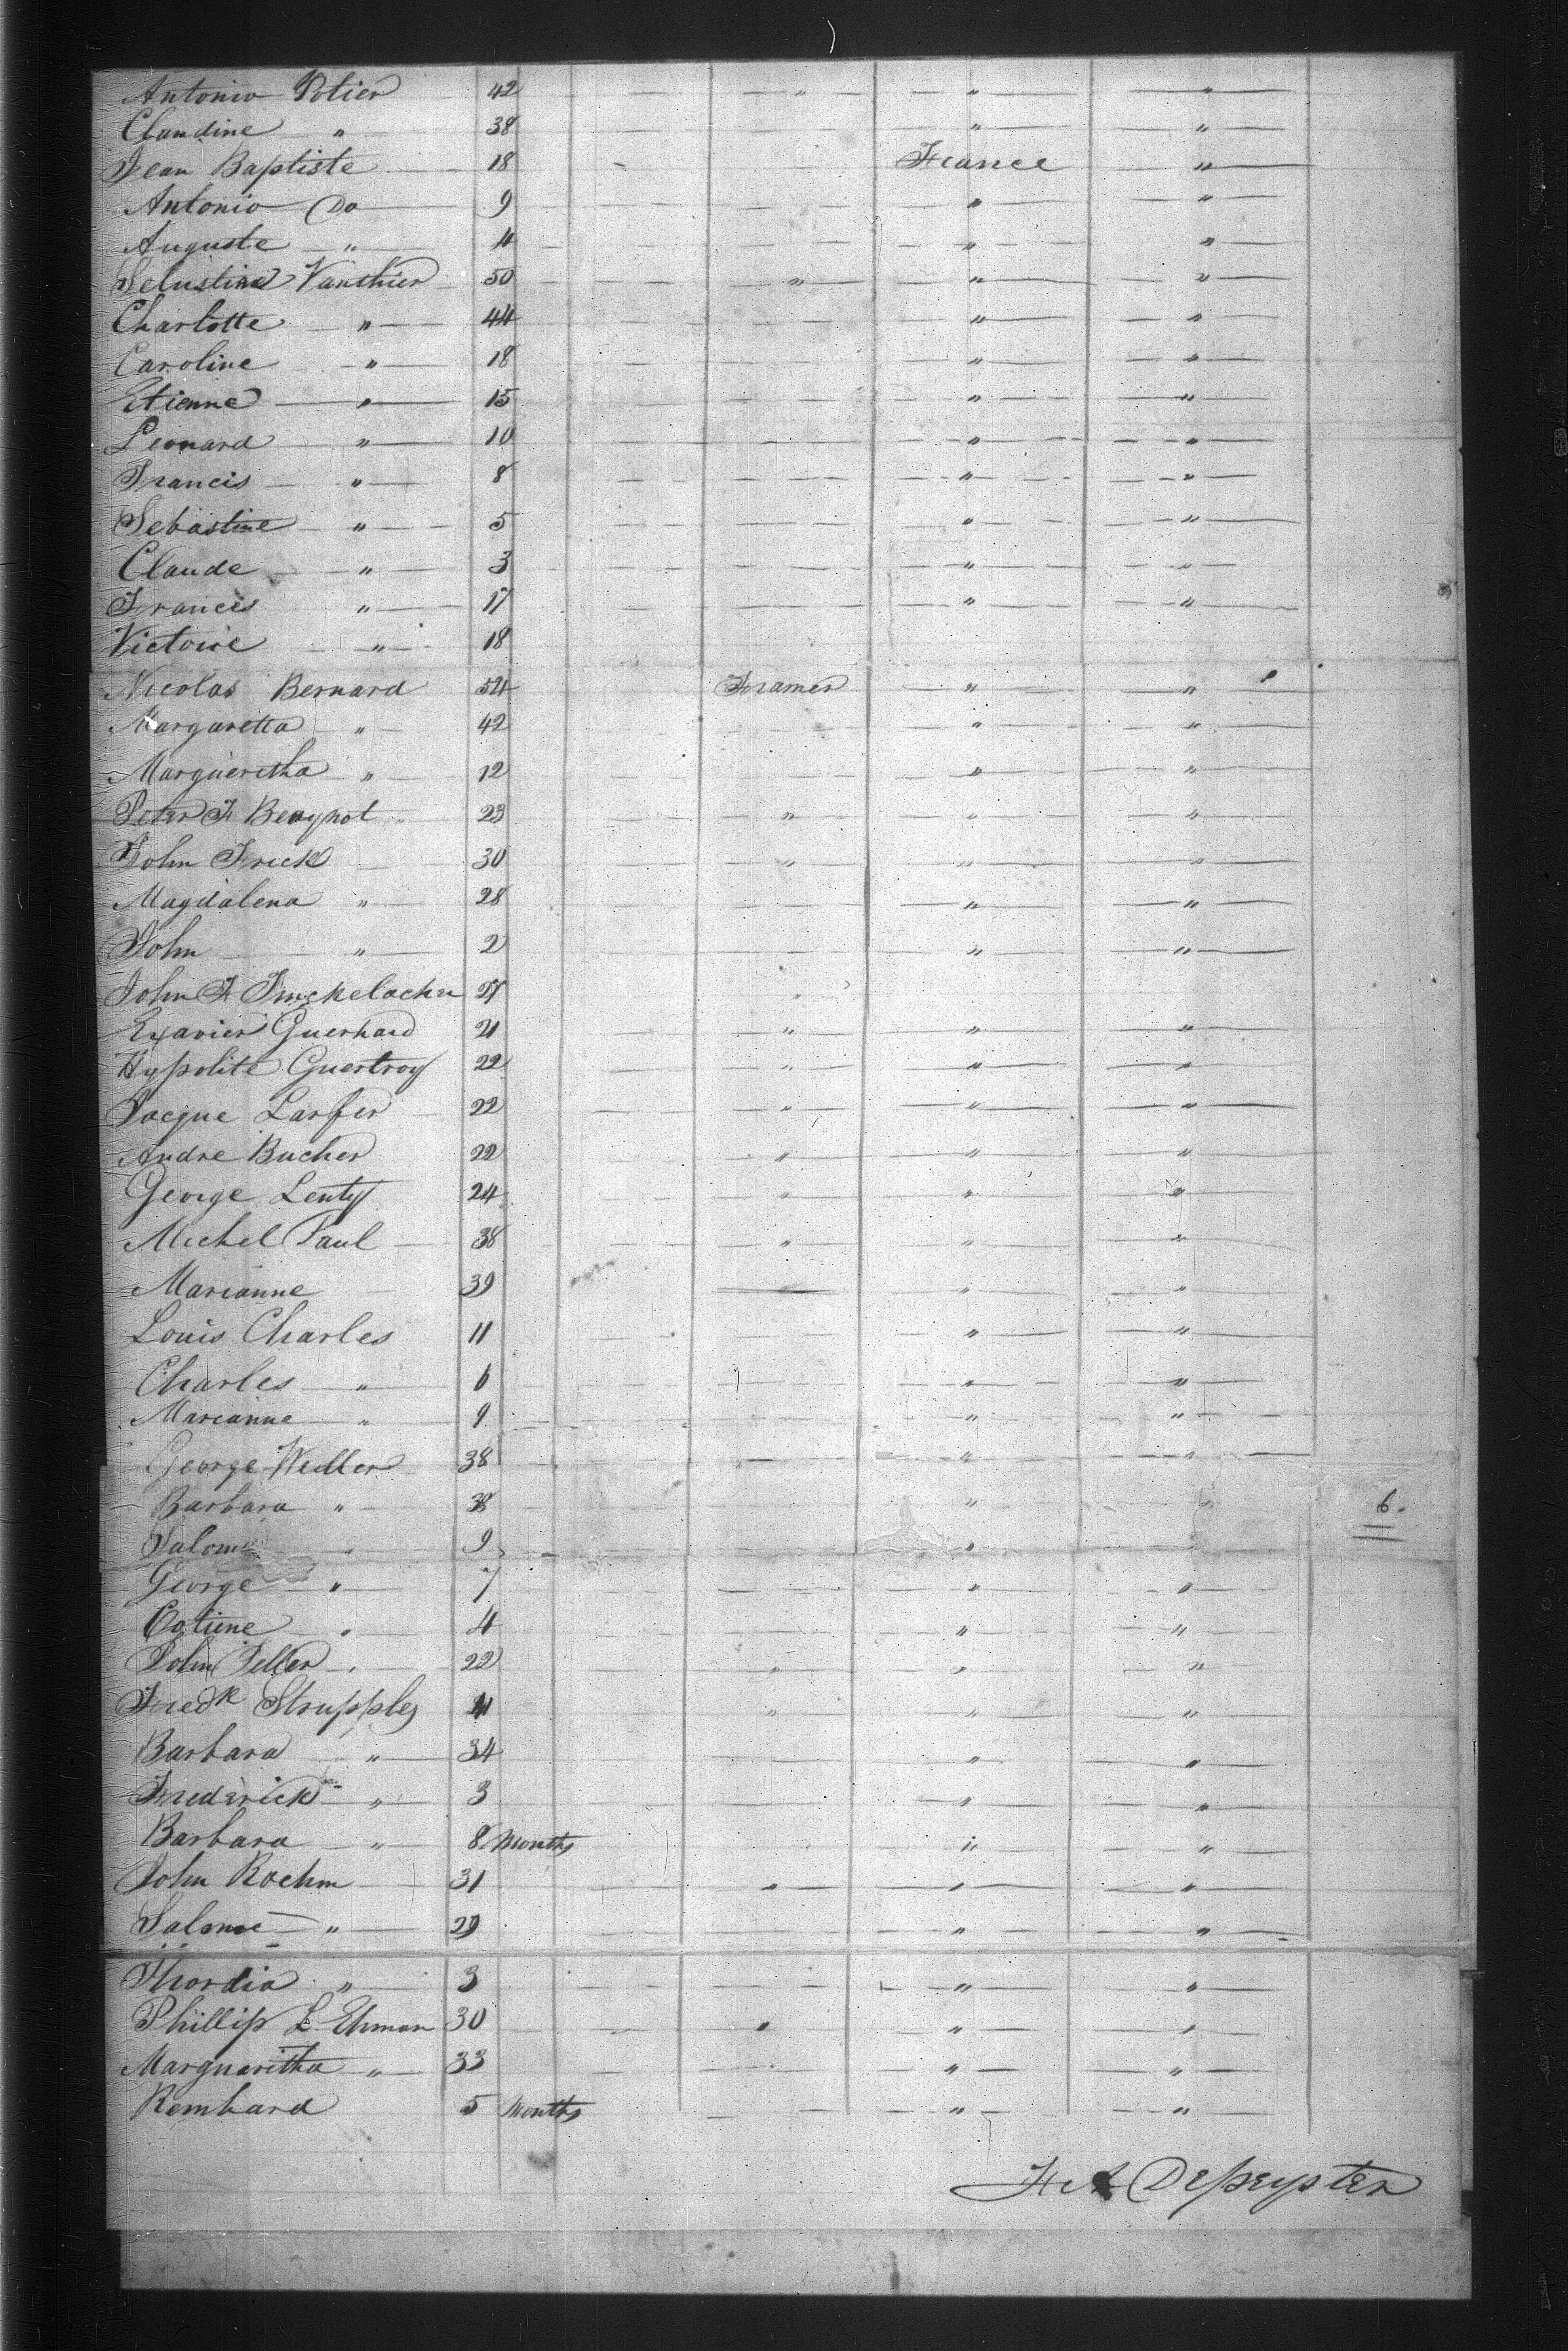 Antonio Potier 42 " " "
Claudine " 38 " "
Jean Baptiste 18 France "
Antonio Do 9 " "
Auguste " 11 " "
Selustine Vauthier 50 " " "
Charlotte " 44 " "
Caroline " 18 " "
Etienne " 15 " "
Leonard " 10 " "
Francis " 8 " "
Sebastine " 5 " "
Claude " 3 " "
Frances " 17 " "
Victoire " 18
Nicolas Bernard 54 Framer " "
Margaretta " 42 " "
Margueritha " 12 " "
Peter F Beaynot 23 " " "
John Frick 30 " " "
Magdalena " 28 " "
John " 2 " "
John F 27 "
Exavier Guerhard 21 " " "
Hypolite Guertroy 22 " " "
Jacque Larfer 22 " " "
Andre Bucher 22 " " "
George Lenty 24 " " "
Michel Paul 38 " " "
Marianne 39 " "
Louis Charles 11 " "
Charles " 6 " "
Marianne " 9 " "
George Wedler 38 " "
Barbara " 38 " " 6.
Salome " 9 " "
George " 7 " "
Catiene " 4 " "
John Feller 22 " " "
Fredk Strupples 41 " " "
Barbara " 34 " "
Frederick " 3 " "
Barbara " 8 Months " "
John Roehm 31 " " "
Salome " 29 " "
" 3 " "
Phillip L. Ehman 30 " " "
Margueritha " 33 " " "
Remhard 5 Months " "
F A Depeyster